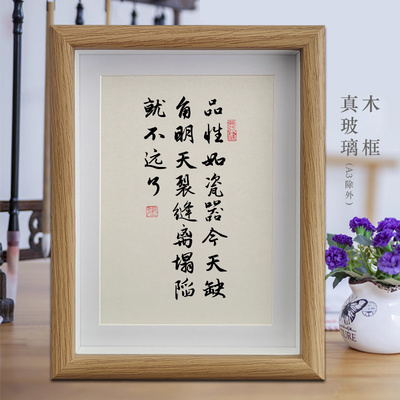 品性如瓷器今天缺
角明天裂缝离塌陷
就不远了
木框
真玻璃
(A3除外)